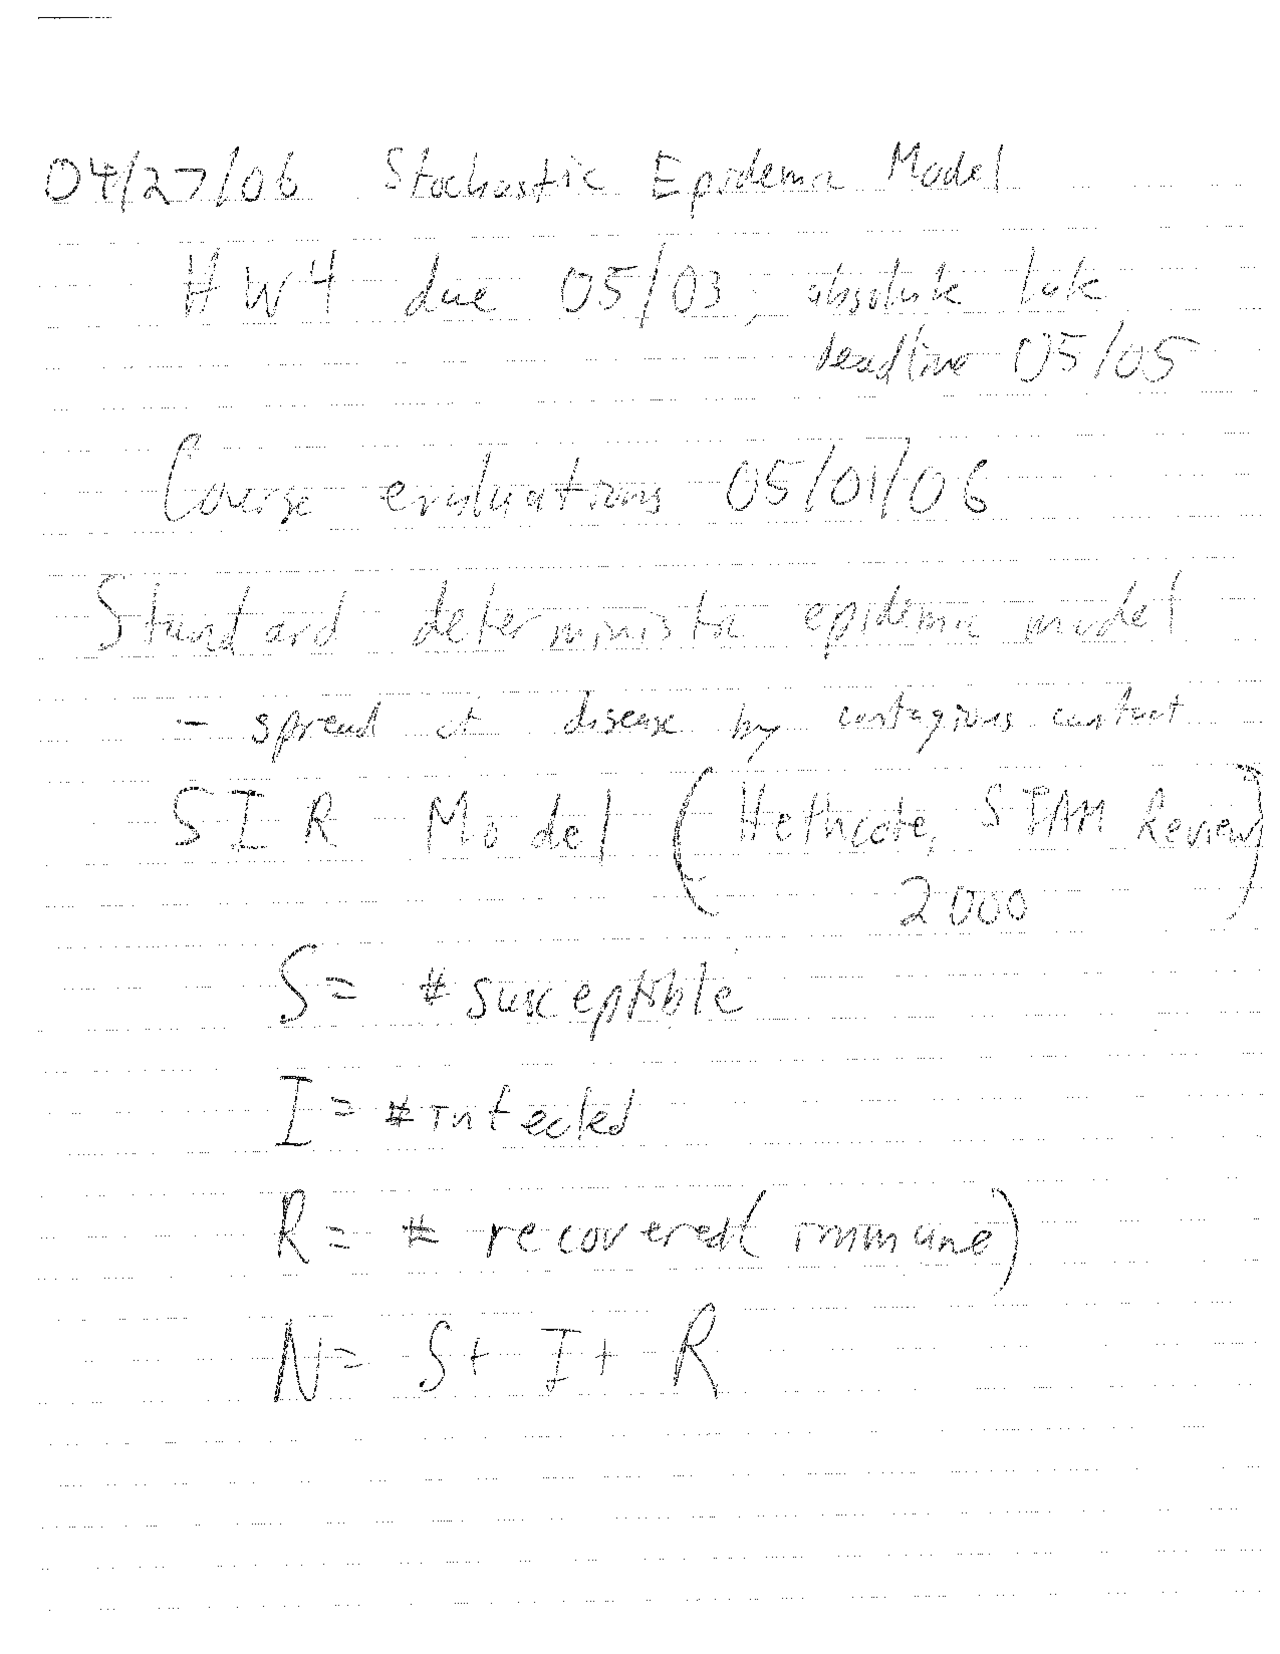 04/27/06 Stochastic Epidemic Model
HW4 due 05/03; absolute late
deadline 05/05
Course evaluations 05/01/06
Standard deterministic epidemic model
- spread of disease by contagious contact
SIR Model (Hethcote, SIAM Review
2000)
S = # susceptible
I = # infected
R = # recovered (immune)
N = S + I + R